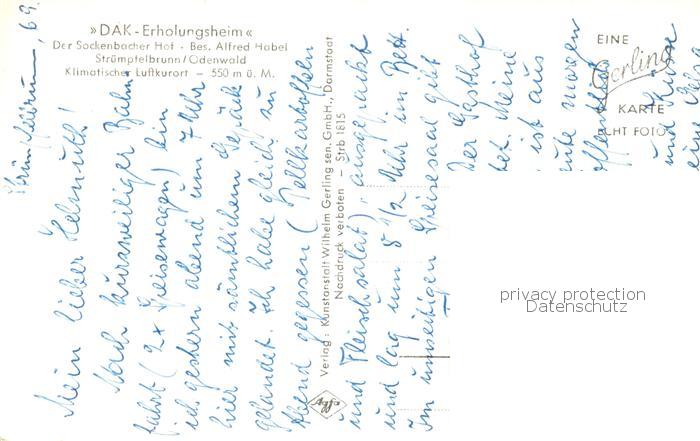 »DAK-Erholungsheim«
Der Sockenbacher Hof · Bes. Alfred Habel
Strümpfelbrunn/Odenwald
Klimatischer Luftkurort – 550 m ü. M.
EINE
Gerling
KARTE
ECHT FOTO
Verlag: Kunstanstalt Wilhelm Gerling sen. GmbH., Darmstadt
Nachdruck verboten – Strb 1815
Agfa
Strümpfelbrunn, 69
Mein lieber Helmuth!
Nach kurzweiliger Bahn
fahrt (2x Speisewagen) bin
ich gestern abend um 7 Uhr
hier mit sämtlichem Gepäck
gelandet. Ich habe gleich zu
Abend gegessen (Pellkartoffeln
und Fleischsalat), ausgepackt
und lag um 8 1/2 Uhr im Bett.
Im umseitigen Speisesaal gibt
Der Gasthof
Meine
ist aus
morgen
und Grüße
eine
privacy protection
Datenschutz